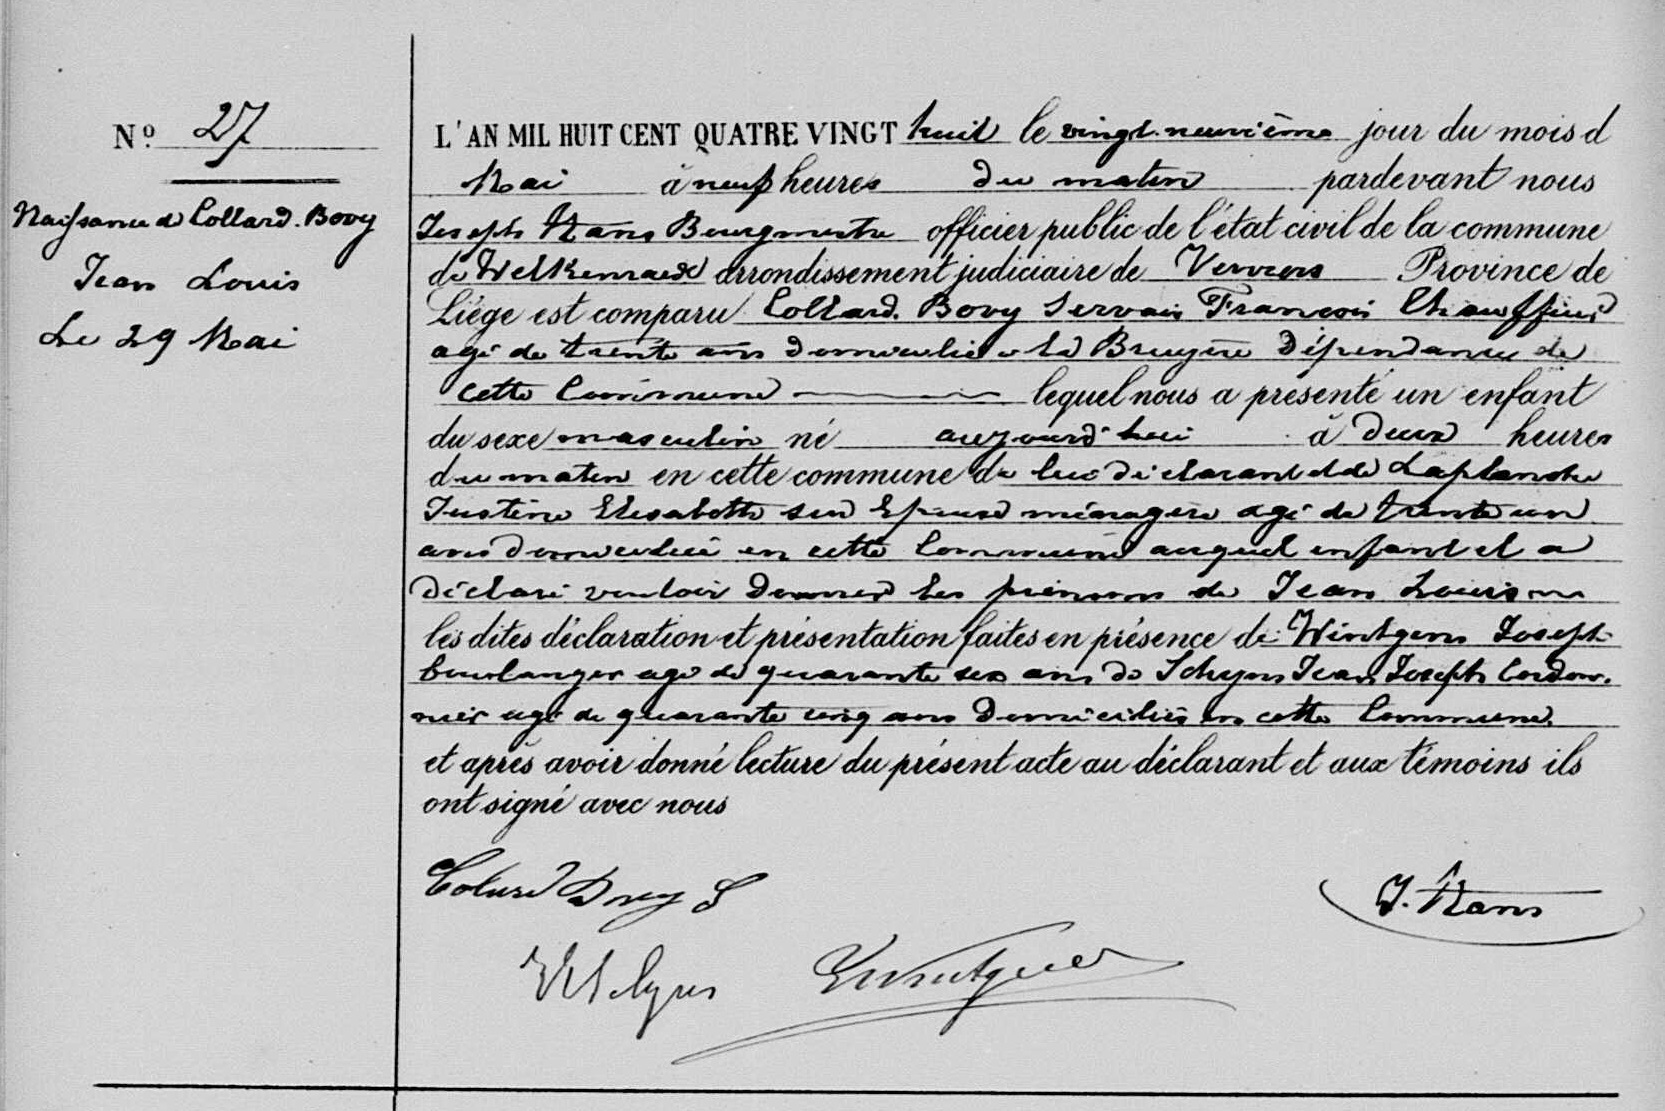 N° 27
Naissance de Collard-Bovy
Jean Louis
Le 29 Mai
L'AN MIL HUIT CENT QUATRE VINGT huit le vingt-neuvième jour du mois d
Mai à neuf heures du matin pardevant nous
Joseph Kans Bourgmestre officier public de l'état civil de la commune
de Welkenraedt arrondissement judiciaire de Verviers Province de
Liége est comparu Collard-Bovy Servais François Chauffeur
agé de trente ans domicilié à la Bruyère dépendance de
cette Commune lequel nous a présenté un enfant
du sexe masculin né aujourd'hui à deux heures
du matin en cette commune de lui déclarant et de Laplanche
Justine Elisabeth son Epouse ménagère agé de trente un
ans domiciliée en cette Commune auquel enfant il a
déclaré vouloir donner les prénoms de Jean Louis
les dites déclaration et présentation faites en présence de Wintgens Joseph
boulanger agé de quarante six ans de Schyns Jean Joseph Cordon-
nier agé de quarante cinq ans domiciliés en cette Commune.
et après avoir donné lecture du présent acte au déclarant et aux témoins ils
ont signé avec nous
Collard Bovy S
J. Kans